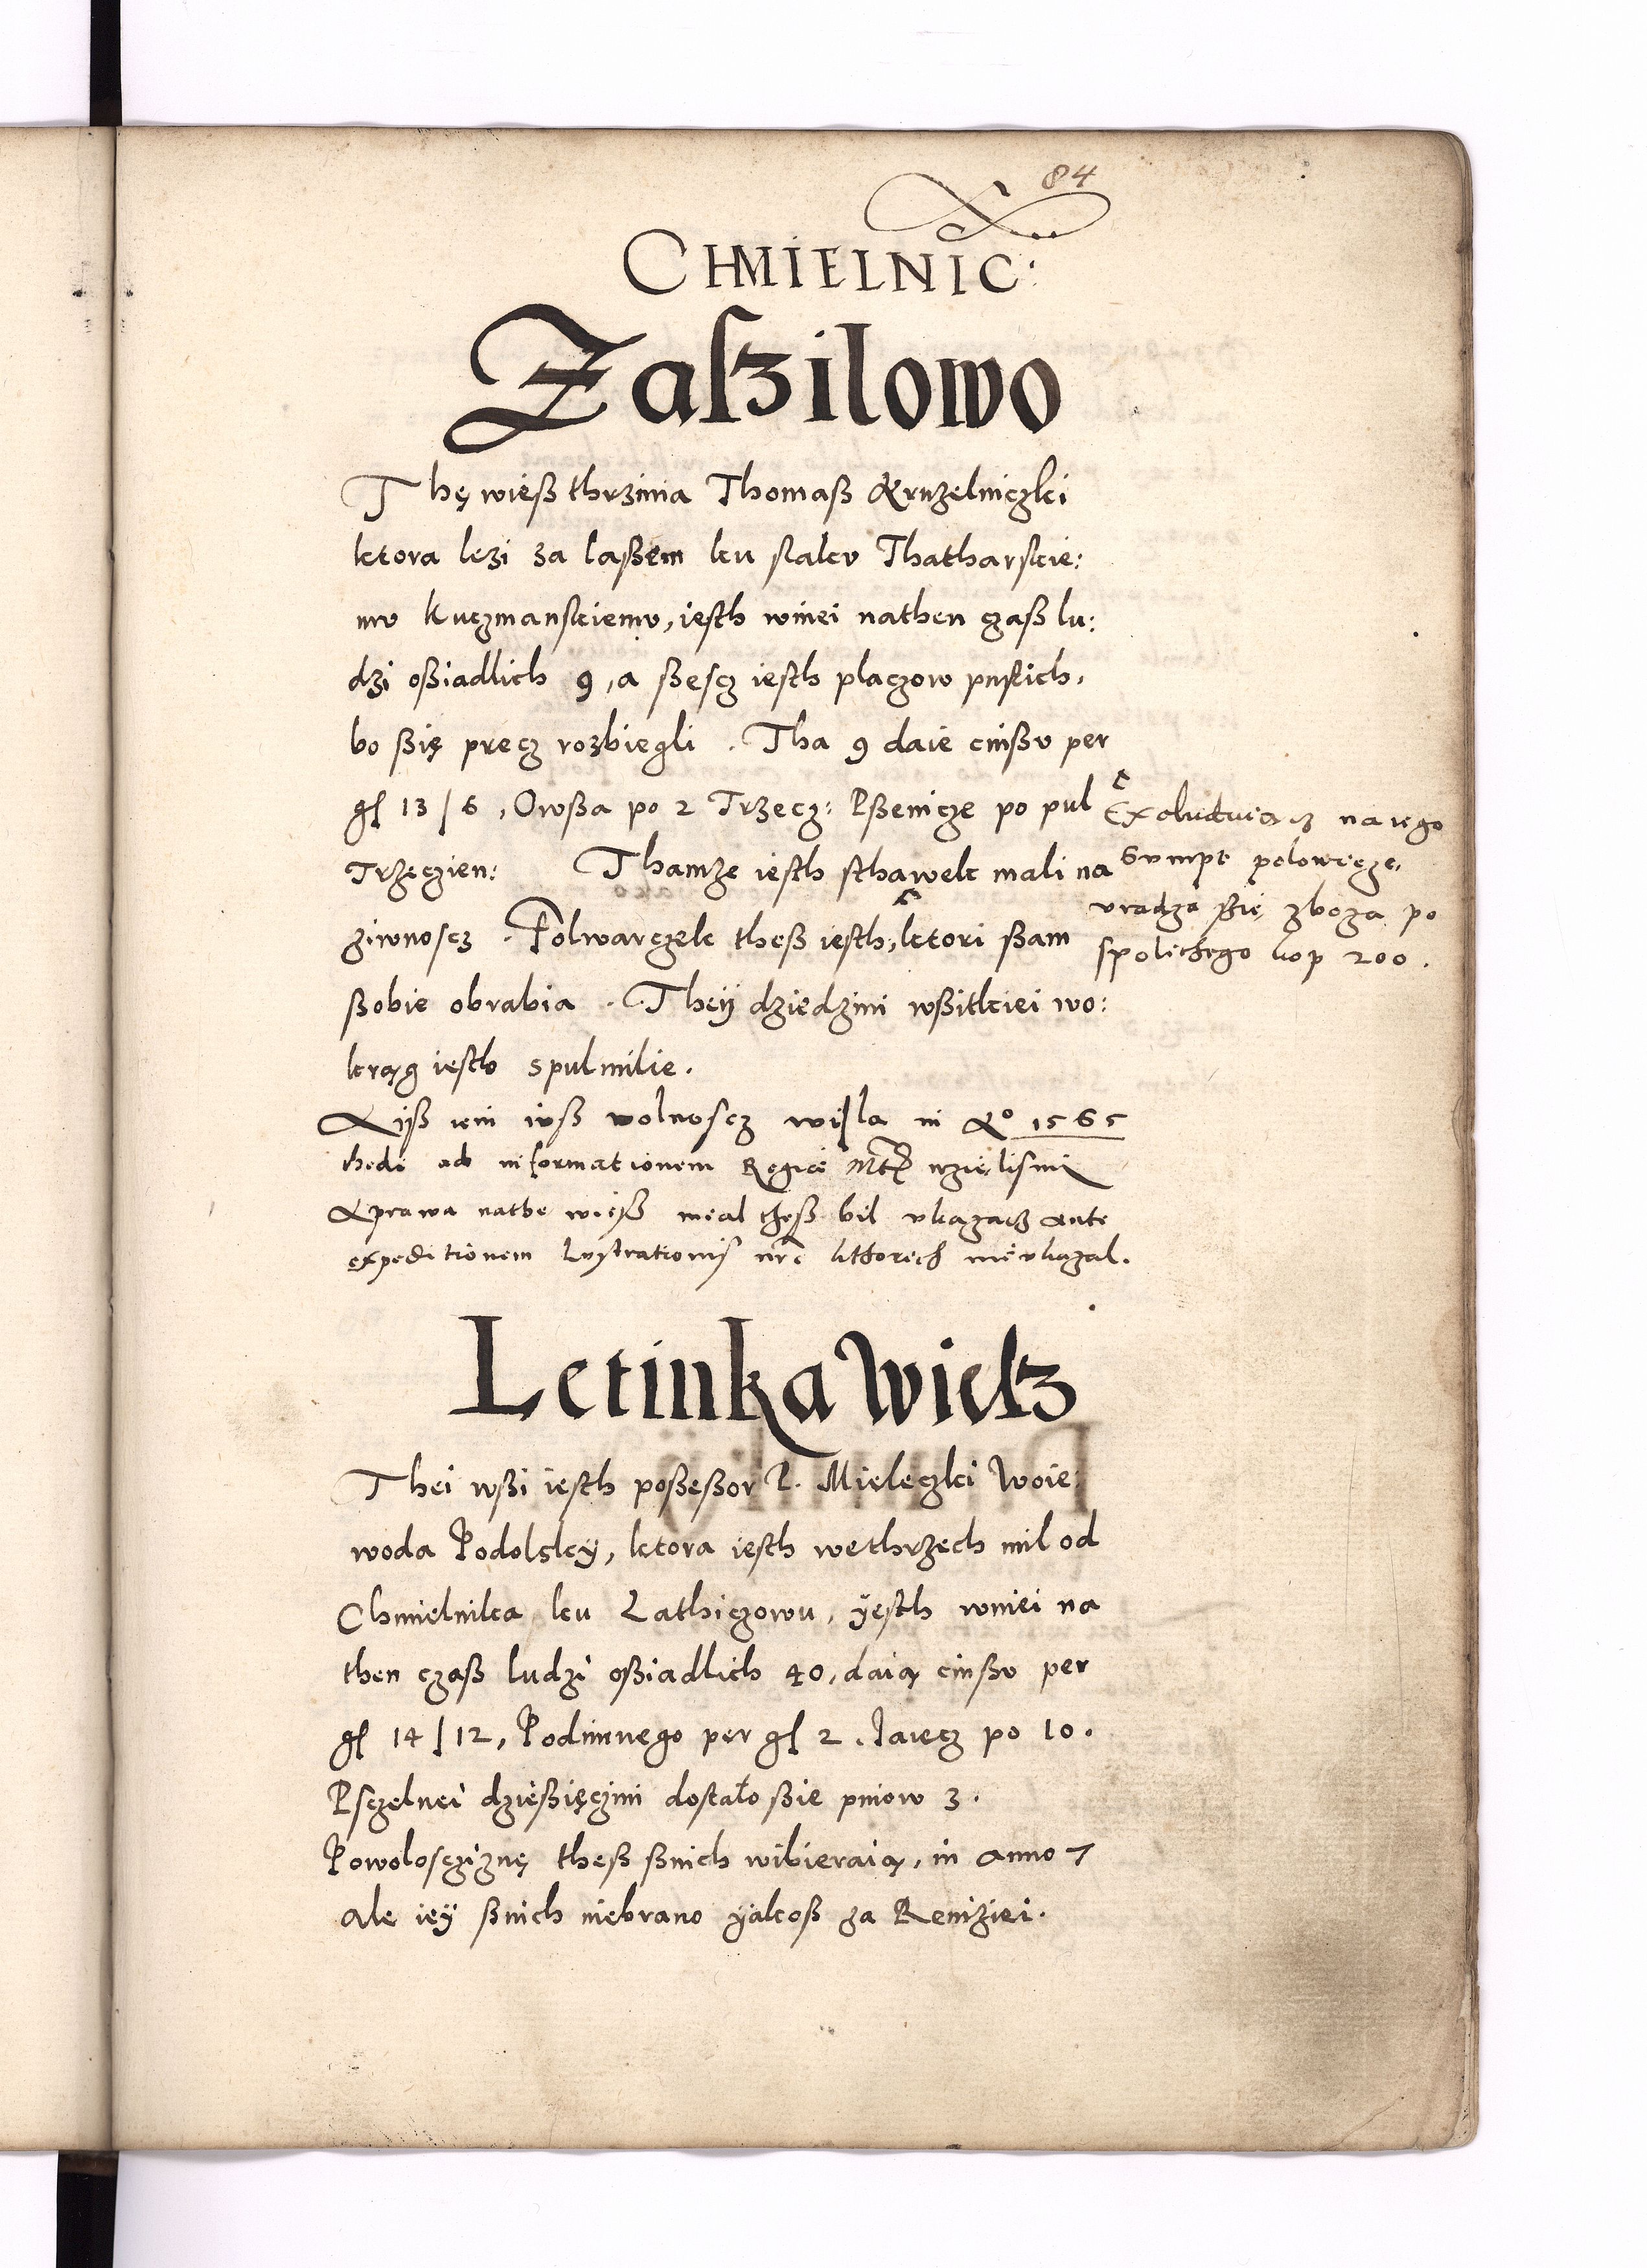 84
CHMIELNIC:
Zaſzilowo
Thę wieß thrzima Thomaß Kruzelniczki
ktora lezi za laßem ku slaku Thatharskie:
mv Kuczmanskiemv, iesth wniei nathen czaß lu:
dzi oßiadlich 9, a ßescz iesth placzow pustich,
bo ßię precz rozbiegli. Tha 9 daie cinßv per
gſ 13 / 6, Owßa po 2 Trzecz: Pßenicze po pul
Trzeczien: Thamze iesth sthawek mali na
ziwnoscz. Polwarczek theß iesth, ktori ßam
ßobie obrabia. Theÿ dziedzini wßitkiei wo:
krąg iesth spulmilie.
Excludviącz na iego
Sumpt polowicze,
vradza ßię zboza po
spolithego kop 200.
Kÿß iem ivß wolnoscz wiſla in Aº 1565
thedi ad informationem Regiæ Mtis wzielismi
A prawa nathe wieß meal theß bil vkazacz ante
expeditionem Lustrationis nrę kthorich nievkazal.
Letinka Wieſz
Thei wßi iesth poßeßor P. Mieleczki Woie:
woda Podolskÿ, ktora iesth wethrzech mil od
Chmielnika ku Lathiczowu, ÿesth wniei na
then czaß ludzi oßiadlich 40, daią cinßv per
gſ 14 / 12, Podimnego per gſ 2. Jaiecz po 10.
Psczelnei dzießięczini dostało ßie pniow 3.
Powoloscziznę theß ßnich wibieraią, in anno 7
ale ieÿ ßnich niebrano ÿakoß za Remiziei.